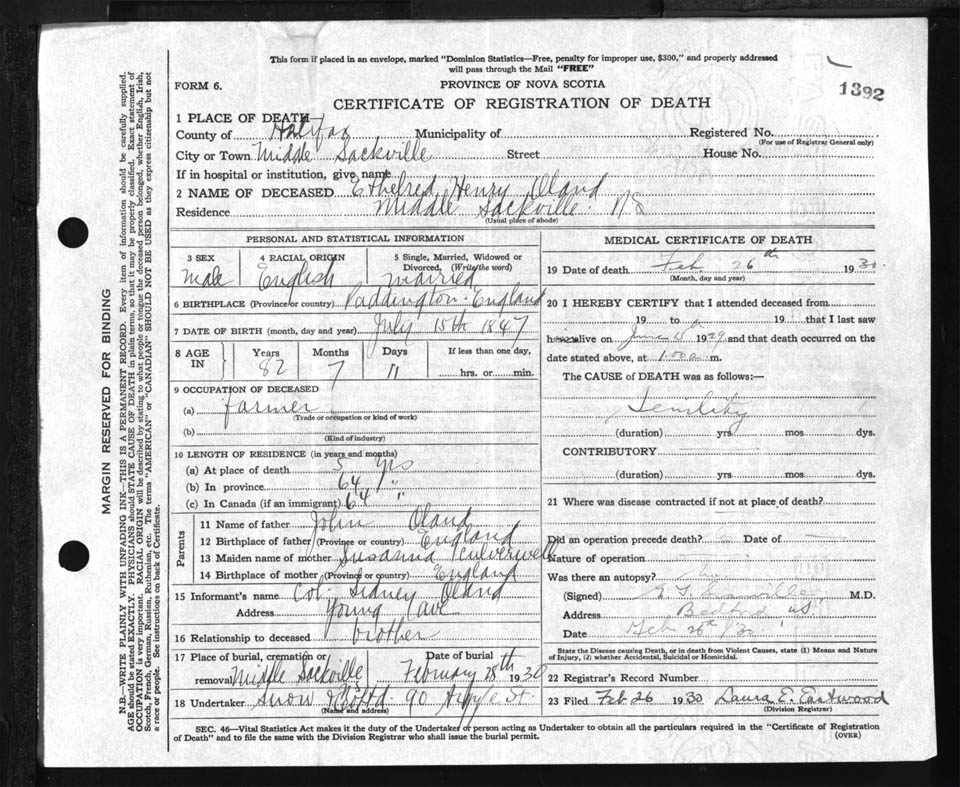 This form if placed in an envelope, marked "Dominion Statistics—Free, penalty for improper use, $300," and properly addressed
will pass through the Mail "FREE"
FORM 6.
PROVINCE OF NOVA SCOTIA
1392
CERTIFICATE OF REGISTRATION OF DEATH
1 PLACE OF DEATH
County of Halifax Municipality of Registered No.
(For use of Registrar General only)
City or Town Middle Sackville Street House No.
If in hospital or institution, give name
2 NAME OF DECEASED Ethelred Henry Oland
Residence Middle Sackville N.S
(Usual place of abode)
PERSONAL AND STATISTICAL INFORMATION
3 SEX 4 RACIAL ORIGIN 5 Single, Married, Widowed or
Divorced. (Write the word)
male English married
6 BIRTHPLACE (Province or country) Paddington England
7 DATE OF BIRTH (month, day and year) July 15th 1847
8 AGE IN Years Months Days If less than one day,
82 7 11 hrs. or min.
9 OCCUPATION OF DECEASED
(a) farmer
(Trade or occupation or kind of work)
(b)
(Kind of industry)
10 LENGTH OF RESIDENCE (in years and months)
(a) At place of death 5 yrs
(b) In province 64 "
(c) In Canada (if an immigrant) 64 "
Parents
11 Name of father John Oland
12 Birthplace of father (Province or country) England
13 Maiden name of mother Susanna Culverwell
14 Birthplace of mother (Province or country) England
15 Informant's name Col. Sidney Oland
Address Young Ave
16 Relationship to deceased brother
17 Place of burial, cremation or Date of burial
removal Middle Sackville February 28th 1930
18 Undertaker Snow & Co Ltd. 90 Argyle St.
(Name and address)
MEDICAL CERTIFICATE OF DEATH
19 Date of death Feb. 26th 1930
(Month, day and year)
20 I HEREBY CERTIFY that I attended deceased from
19 to 19 that I last saw
alive on June 1929 and that death occurred on the
date stated above, at 1.00 a. m.
The CAUSE of DEATH was as follows:—
Senility
(duration) yrs mos dys.
CONTRIBUTORY
(duration) yrs mos dys.
21 Where was disease contracted if not at place of death?
Did an operation precede death? Date of
Nature of operation
Was there an autopsy?
(Signed) M.D.
Address Bedford NS
Date Feb 26th / 30
State the Disease causing Death, or in death from Violent Causes, state (1) Means and Nature
of Injury, (2) whether Accidental, Suicidal or Homicidal.
22 Registrar's Record Number
23 Filed Feb 26 1930 Laura E. Eastwood
(Division Registrar)
SEC. 46—Vital Statistics Act makes it the duty of the Undertaker or person acting as Undertaker to obtain all the particulars required in the "Certificate of Registration
of Death" and to file the same with the Division Registrar who shall issue the burial permit.
(OVER)
MARGIN RESERVED FOR BINDING
N.B.—WRITE PLAINLY WITH UNFADING INK—THIS IS A PERMANENT RECORD. Every item of information should be carefully supplied.
AGE should be stated EXACTLY. PHYSICIANS should STATE CAUSE OF DEATH in plain terms, so that it may be properly classified. Exact statement of
OCCUPATION is very important. RACIAL ORIGIN will be described by stating to what people or tongue the deceased person belonged, whether English, Irish,
Scotch, French, German, Russian, Ruthenian, etc. The terms "AMERICAN" or "CANADIAN" SHOULD NOT BE USED as they express citizenship but not
a race or people. See instructions on back of Certificate.